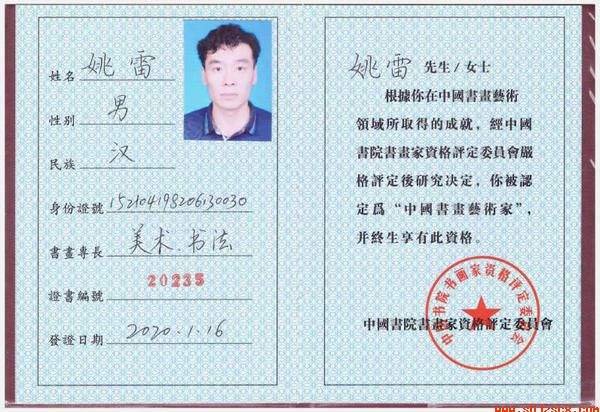 姓名 姚雷
性别 男
民族 汉
身份證號 152104198206130030
書畫專長 美术.书法
證書編號 20235
發證日期 2020.1.16
姚雷 先生/女士
根據你在中國書畫藝術
領域所取得的成就，經中國
書院書畫家資格評定委員會嚴
格評定後研究决定，你被認
定爲“中國書畫藝術家”，
并終生享有此資格。
中國書院書畫家資格評定委員會
中国书院书画家资格评定委员会